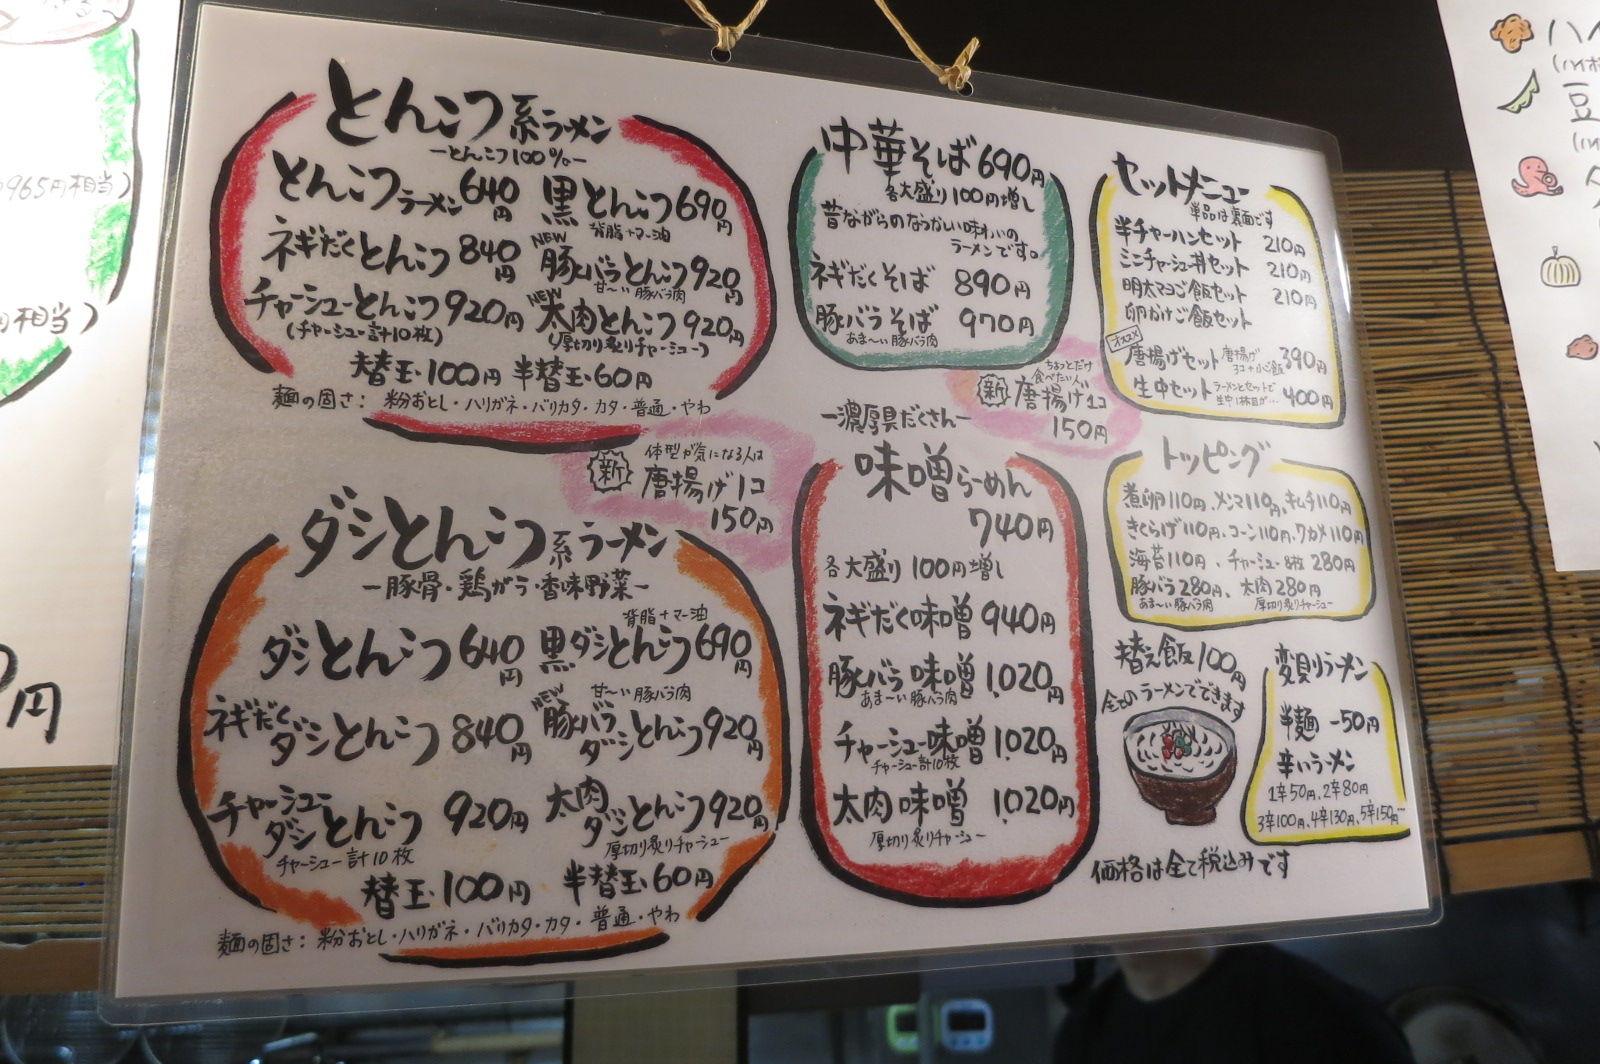 とんこつ系ラーメン
ーとんこつ100%ー
とんこつラーメン640円
黒とんこつ690円
背脂+マー油
ネギだくとんこつ840円
NEW
豚バラとんこつ920円
甘〜い豚バラ肉
チャーシューとんこつ920円
(チャーシュー計10枚)
NEW
太肉とんこつ920円
(厚切り炙りチャーシュー)
替玉・100円 半替玉・60円
麺の固さ：粉おとし・ハリガネ・バリカタ・カタ・普通・やわ
新
体型が気になる人は
唐揚げ1コ
150円
ダシとんこつ系ラーメン
ー豚骨・鶏がら・香味野菜ー
ダシとんこつ640円
背脂+マー油
黒ダシとんこつ690円
ネギだくダシとんこつ840円
NEW
甘〜い豚バラ肉
豚バラダシとんこつ920円
チャーシューダシとんこつ920円
チャーシュー計10枚
太肉ダシとんこつ920円
厚切り炙りチャーシュー
替玉・100円 半替玉・60円
麺の固さ：粉おとし・ハリガネ・バリカタ・カタ・普通・やわ
中華そば690円
各大盛り100円増し
昔ながらのなつかしい味わいの
ラーメンです。
ネギだくそば 890円
豚バラそば 970円
あま〜い豚バラ肉
新
ちょっとだけ
食べたい人
唐揚げ1コ
150円
ー濃厚具だくさんー
味噌らーめん
740円
各大盛り100円増し
ネギだく味噌940円
豚バラ味噌1,020円
あま〜い豚バラ肉
チャーシュー味噌1,020円
チャーシュー計10枚
太肉味噌 1,020円
厚切り炙りチャーシュー
セットメニュー
単品は裏面です
半チャーハンセット 210円
ミニチャーシュー丼セット 210円
明太マヨご飯セット 210円
卵かけご飯セット
オススメ
唐揚げセット 唐揚げ3コ+小ご飯 390円
生中セット ラーメンとセットで生中1杯目が… 400円
トッピング
煮卵110円、メンマ110円、キムチ110円
きくらげ110円、コーン110円、ワカメ110円
海苔110円、チャーシュー8枚280円
豚バラ280円、太肉280円
あま〜い豚バラ肉 厚切り炙りチャーシュー
替え飯100円
全てのラーメンでできます
変則ラーメン
半麺 -50円
辛いラーメン
1辛50円、2辛80円
3辛100円、4辛130円、5辛150円…
価格は全て税込みです
965円相当)
円相当)
円